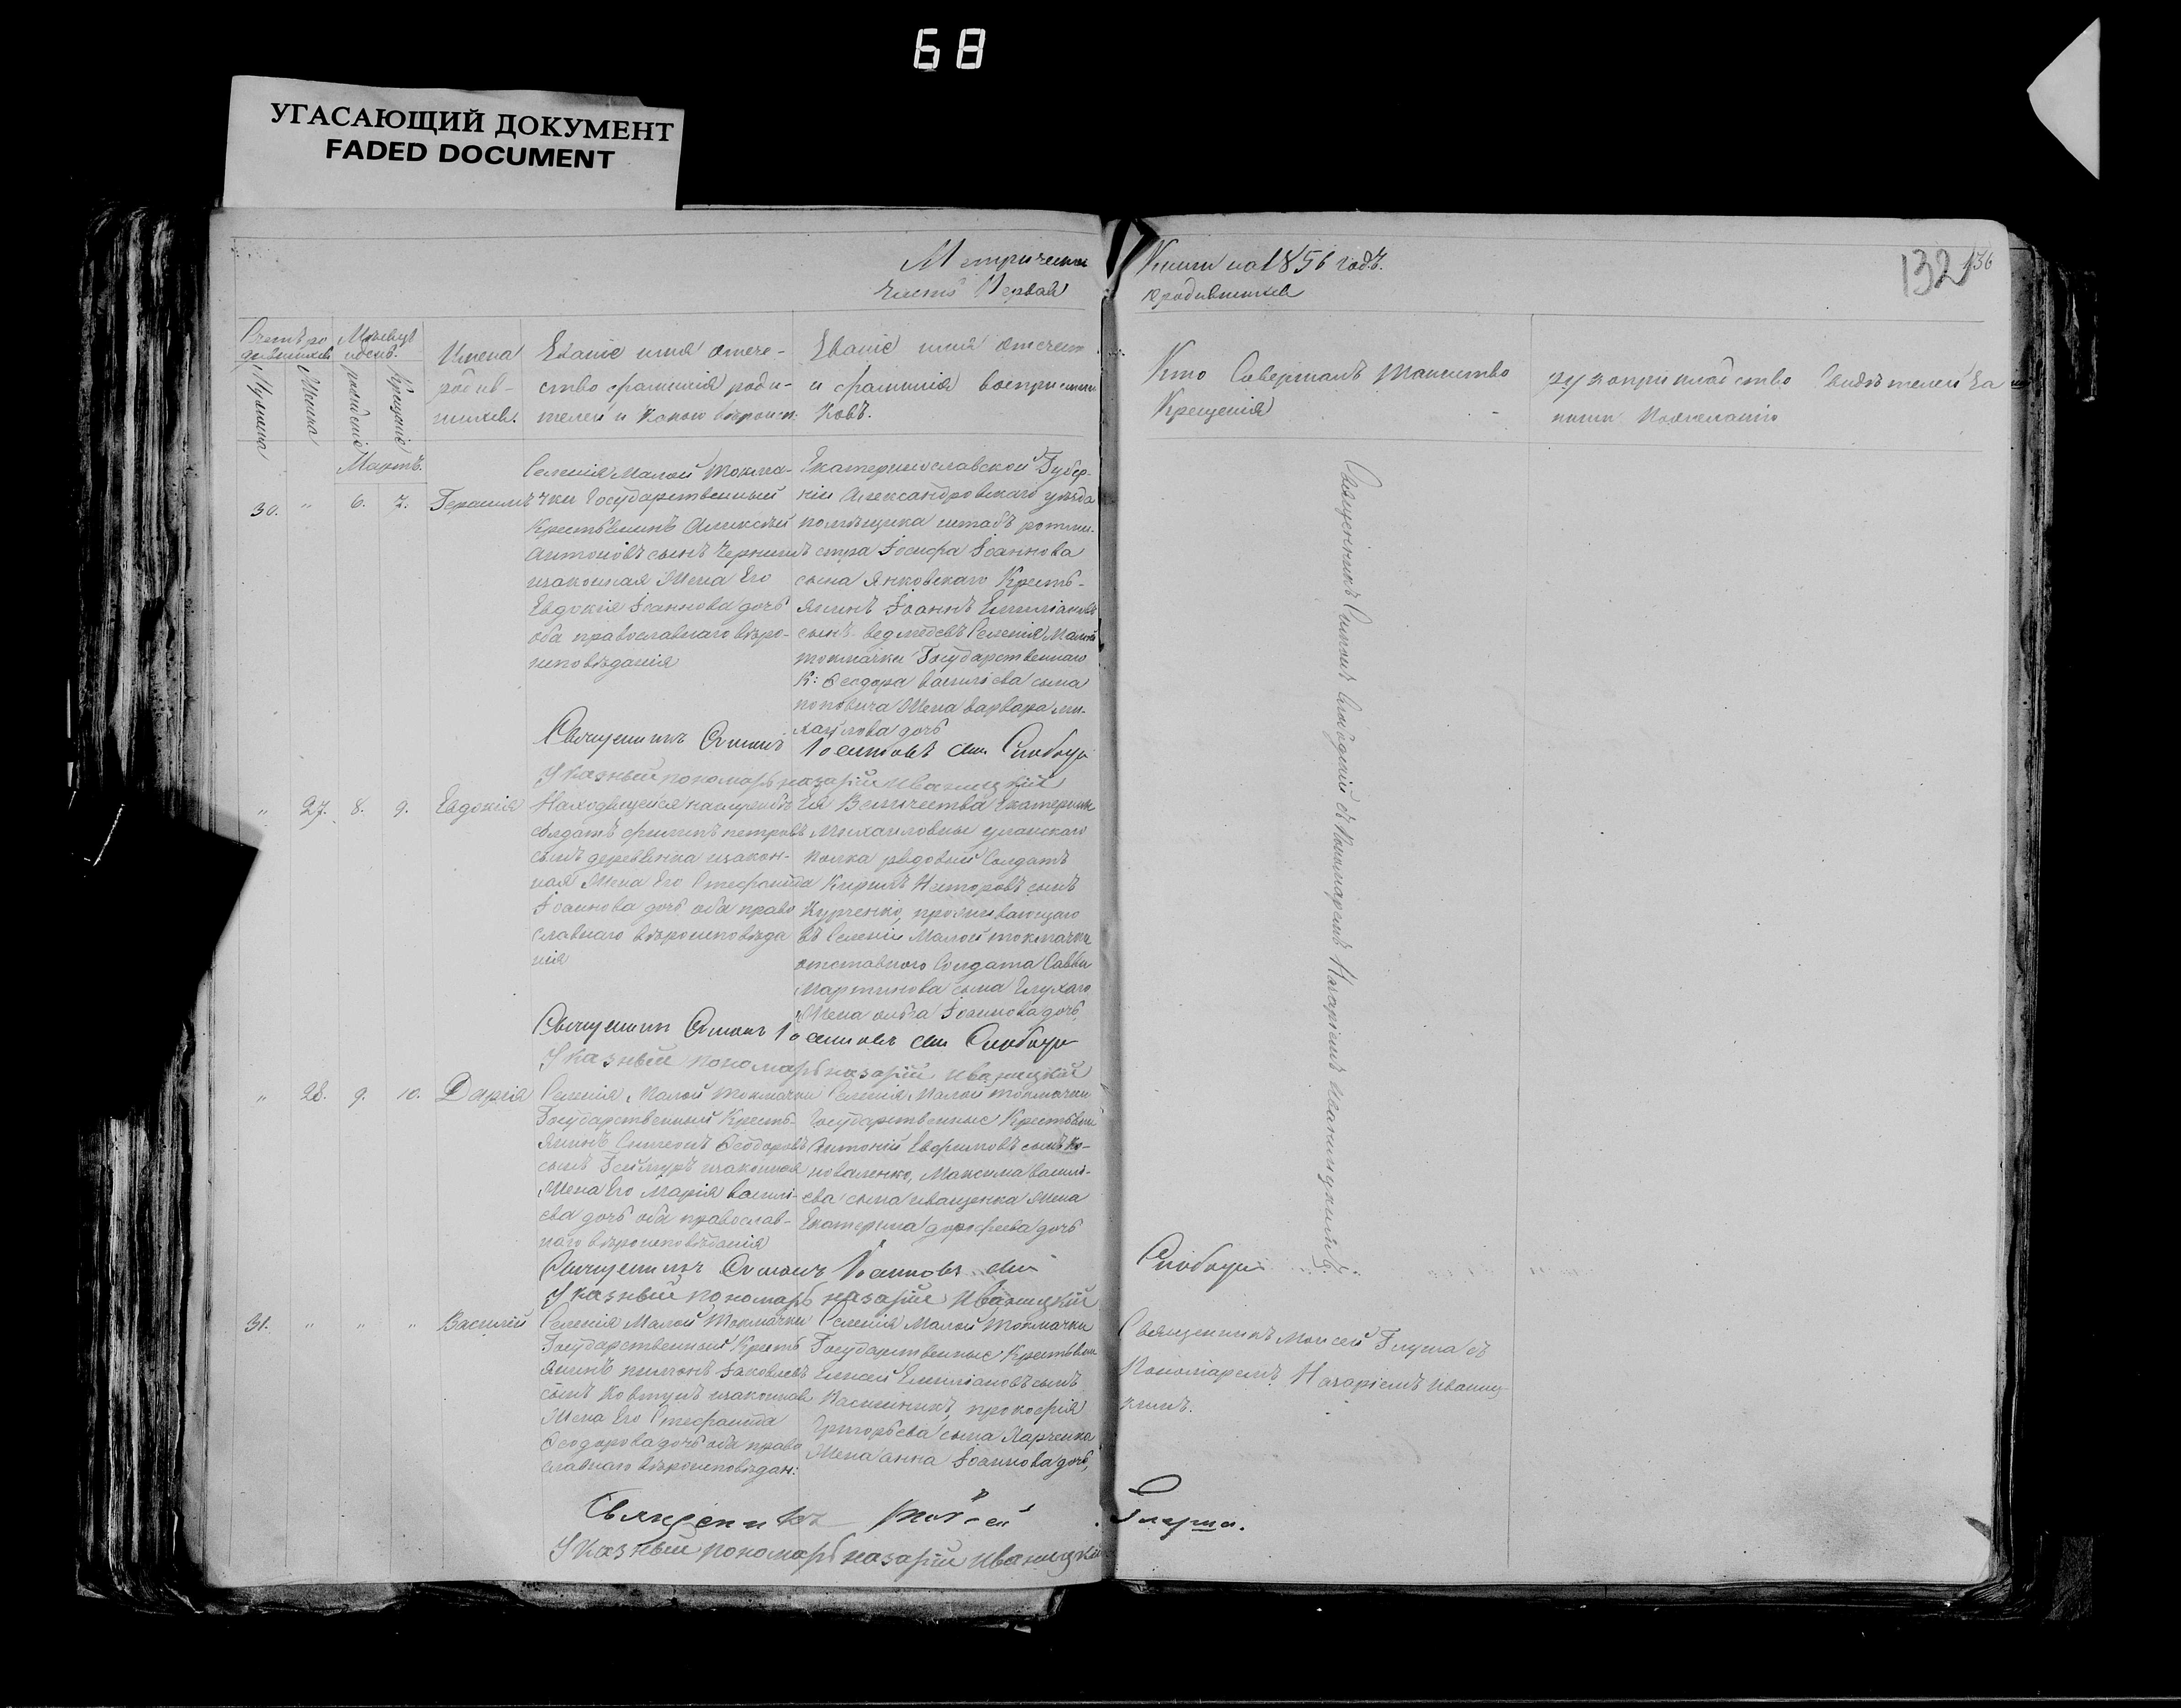 68
УГАСАЮЩИЙ ДОКУМЕНТ
FADED DOCUMENT
Метрически
Книги на 1856 годъ.
132
136
часть Первая
о родившихся
Счетъ ро
дившихся
Мѣсяцъ
и день.
Мужеска
Женска
рожденіе
Крещеніе
Имена
родив-
шихся.
Званіе имя отече-
ство фамилія роди-
телей и какого вѣроисп.
Званіе имя отечест
и фамилія воспріемни
ковъ.
Кто Совершалъ Таинство
Крещенія
рукоприкладство Свидѣтелей за
писи По желанію
Мартъ.
30. " 6. 7. Герасимъ
Селенія Малой Токма-
чки Государственный
Крестьянинъ Алексѣй
Антоновъ сынъ
изаконная Жена Его
Евдокія Іоаннова дочь
оба православнаго вѣро-
исповѣданія
Екатеринославской Губер-
ніи Александровскаго уѣзда
помѣщика штабъ ротми-
стра Іосифа Іоаннова
сына Янковскаго Кресть-
янинъ Іоаннъ Емиліановъ
сынъ ведмедевъ Селенія Малой
токмачки Государственнаго
К: Ѳеодора василіева сына
поповича Жена варвара ми-
хаилова дочь
Священникъ Симонъ Іоанновъ сынъ Слободу
Указный пономарь назарій Иваницкій
" 27. 8. 9. Евдокія
Находящейся
солдатъ филипъ петровъ
сынъ деревянка изакон-
ная Жена Его Стефанида
Іоаннова дочь оба право
славнаго вѣроисповѣда
нія
Ея Величества Екатерины
Михаиловны уланскаго
полка рядовый Солдатъ
Кирилъ Несторовъ сынъ
Курченко, проживающаго
въ Селеніи Малой токмачки
отставного Солдата Саввы
Мартинова сына Глухаго
Жена ольга Іоаннова дочь
Священникъ Симонъ Іоанновъ сынъ Слободу
Указный пономарь назарій Иваницкій
" 28. 9. 10. Дарія
Селенія Малой Токмачки
Государственный Кресть-
янинъ Симеонъ Ѳеодоровъ
сынъ изаконная
Жена Его Марія васили-
ева дочь оба православ-
наго вѣроисповѣданія
Селенія Малой токмачки
Государственные Крестьяни
Антоній Евфимовъ сынъ Ко-
новаленко, Максима васили-
ева сына иващенка Жена
Екатерина дорофеева дочь
Священникъ Симонъ Іоанновъ сынъ
Слободу
Указный пономарь назарій Иваницкій
31. " " " Василій
Селенія Малой Токмачки
Государственный Кресть
янинъ пименъ Іаковлевъ
сынъ Ковтунъ изаконная
Жена Его Стефанида
Ѳеодорова дочь оба право
славнаго вѣроисповѣдан:
Селенія Малой токмачки
Государственные Крестьяни
Елисей Емиліановъ сынъ
Пасишникъ, прокофія
Григорьева сына Харченка
Жена анна Іоаннова дочь,
Священникъ Моисей Глуша съ
Пономаремъ Назаріемъ Иваниц-
кимъ.
Священникъ Моѵсей
Глуша.
Указный пономарь назарій Иваницкій
Священникъ Симонъ Слободскій съ Пономаремъ Назаріемъ Иваницкимъ